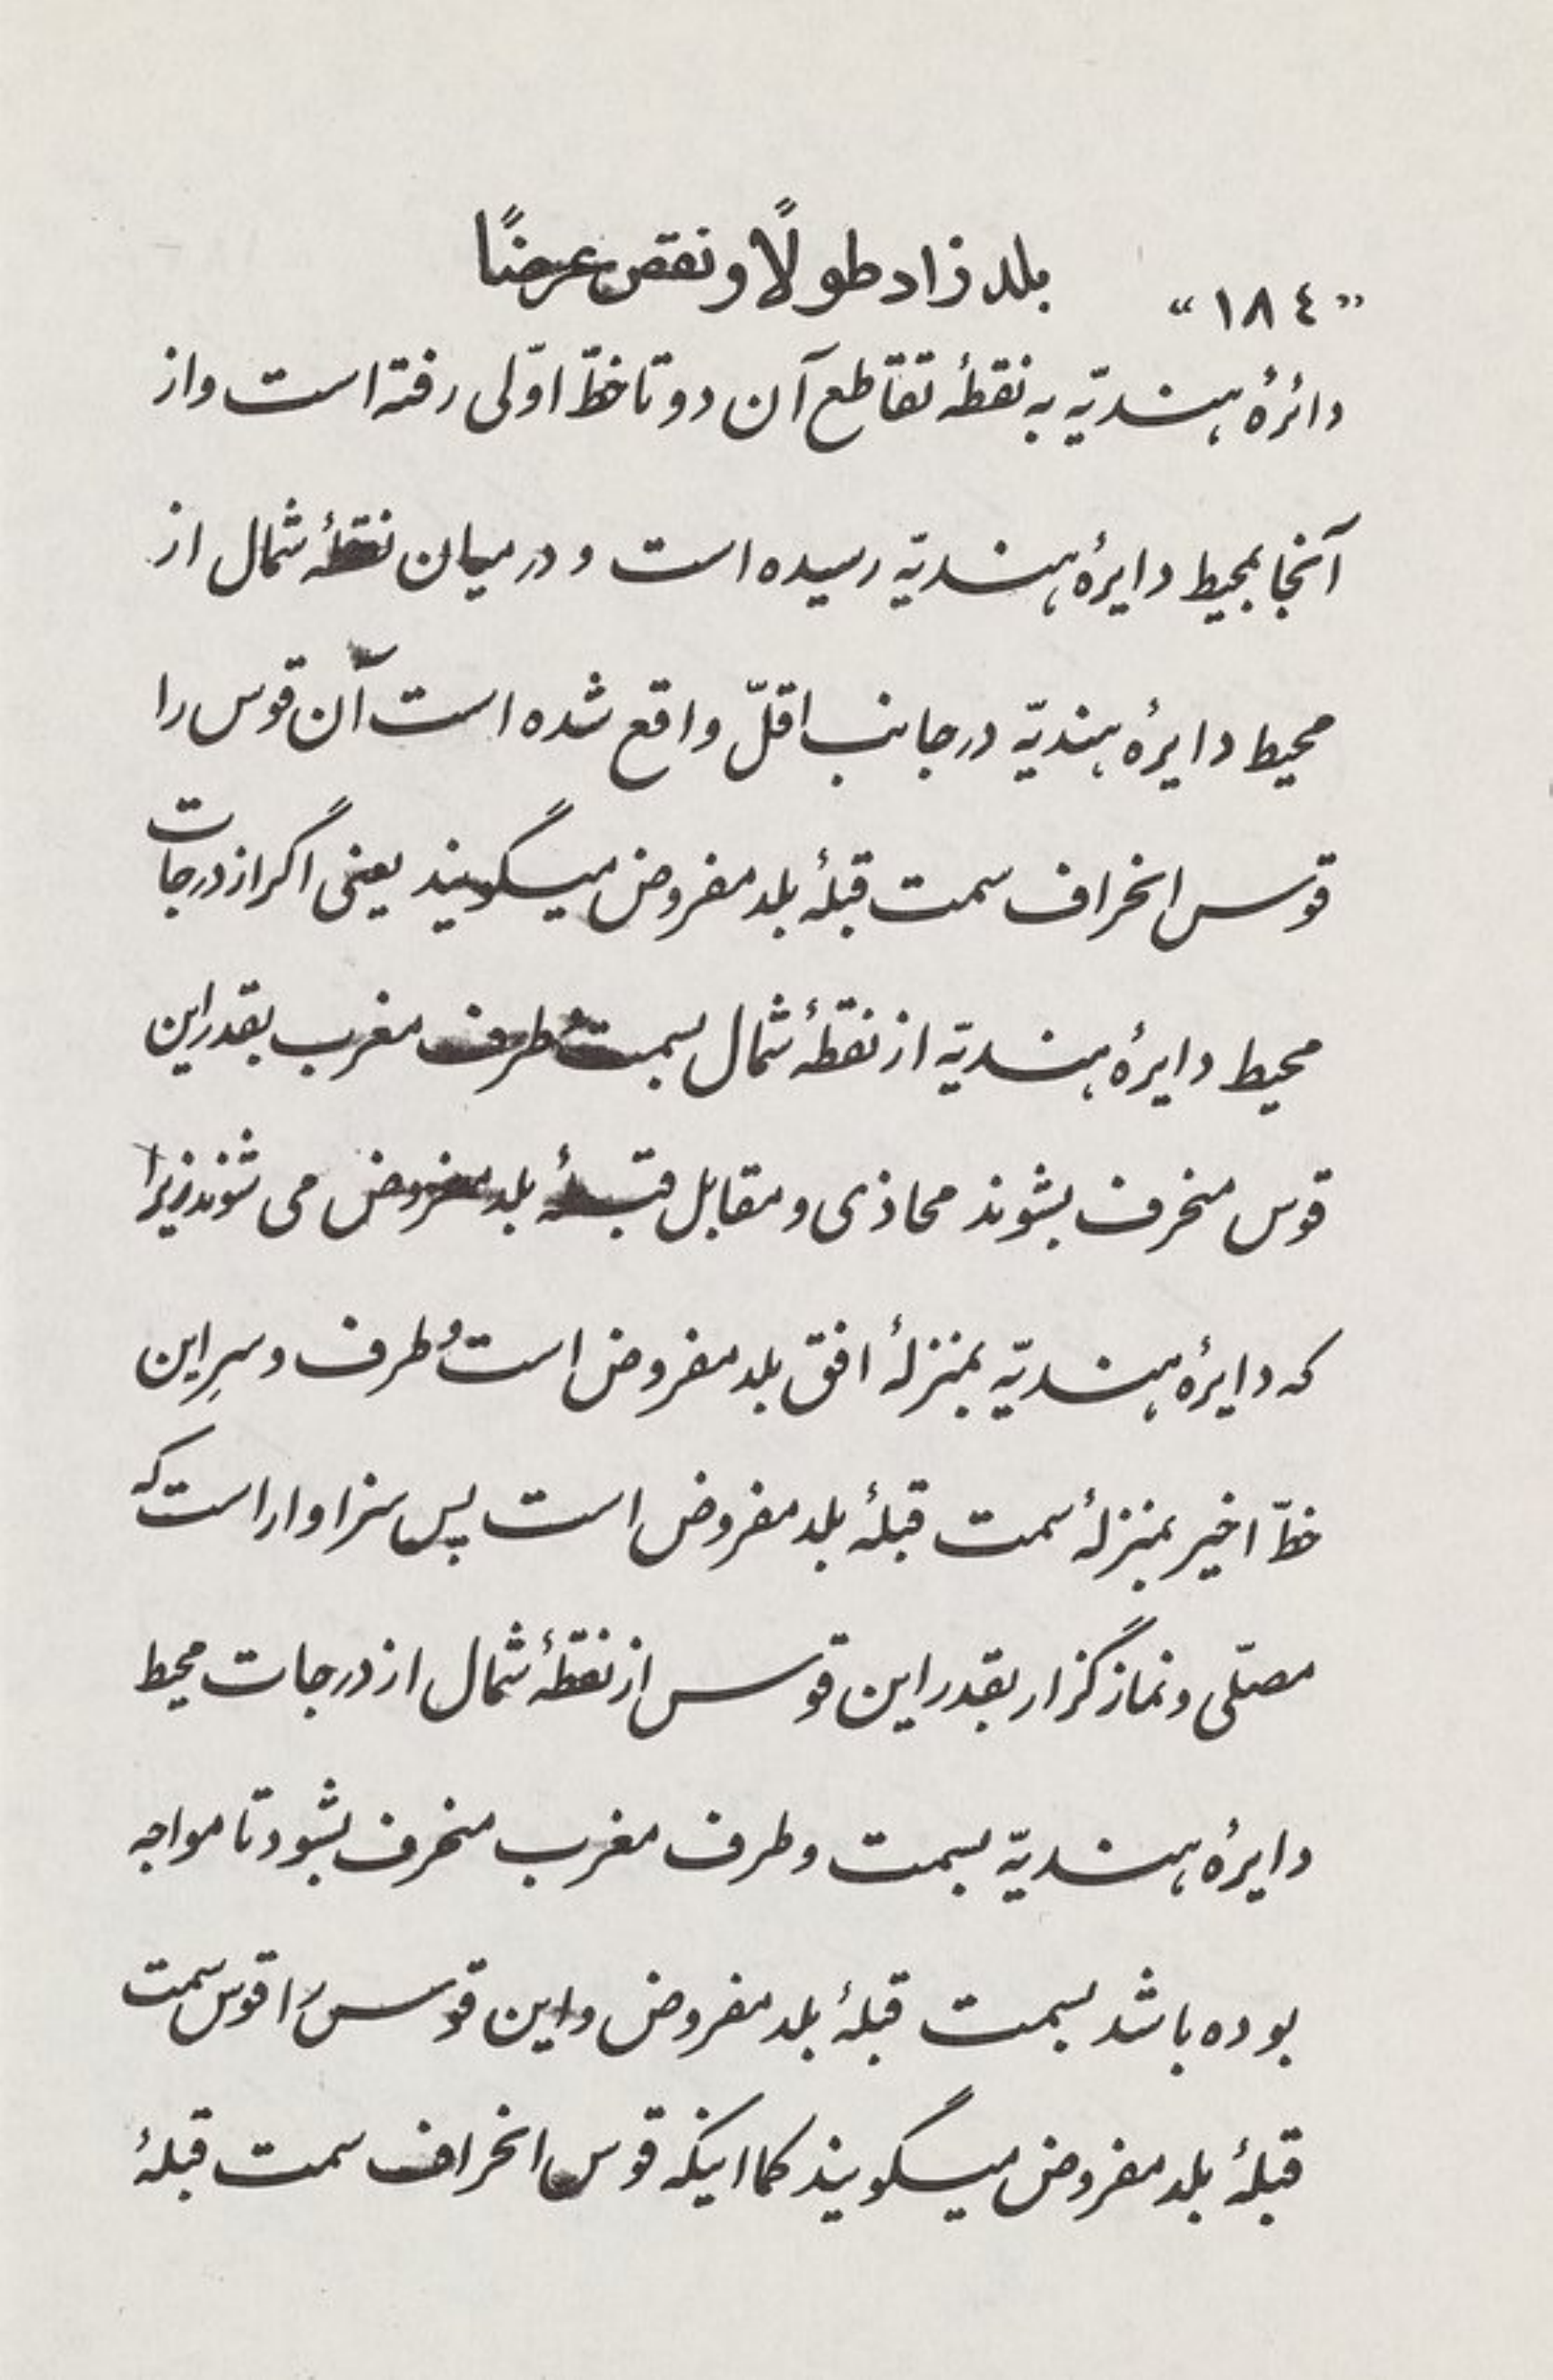 «١٨٤» بلد زاد طولًا و نقص عرضًا
دائرۀ هندیّه به نقطۀ تقاطع آن دو تا خطّ اوّلی رفته است و از
آنجا بمحیط دایرۀ هندیّه رسیده است و در میان نقطۀ شمال از
محیط دایرۀ هندیّه در جانب اقلّ واقع شده است آن قوس را
قوس انحراف سمت قبلۀ بلد مفروض میگویند یعنی اگر از درجات
محیط دایرۀ هندیّه از نقطۀ شمال بسمت و طرف مغرب بقدر این
قوس منحرف بشوند محاذی و مقابل قبلۀ بلد مفروض می شوند زیرا
که دایرۀ هندیّه بمنزلۀ افق بلد مفروض است و طرف و سرِ این
خطّ اخیر بمنزلۀ سمت قبلۀ بلد مفروض است پس سزاوار است که
مصلّی و نماز گزار بقدر این قوس از نقطۀ شمال از درجات محیط
دایرۀ هندیّه بسمت و طرف مغرب منحرف بشود تا مواجه
بوده باشد بسمت قبلۀ بلد مفروض و این قوس را قوس سمت
قبلۀ بلد مفروض میگویند کما اینکه قوس انحراف سمت قبلۀ